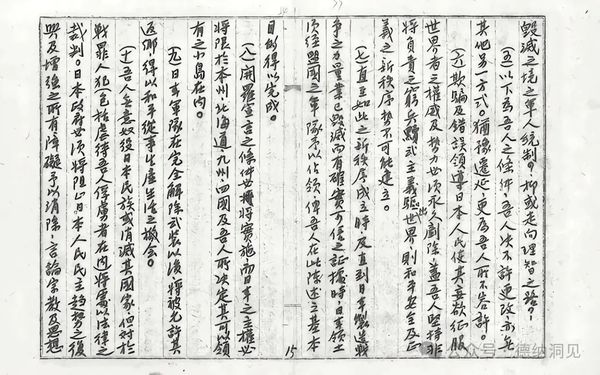 毀滅之境之軍人統制？抑或走向理智之路？
（五）以下為吾人之條件，吾人決不許更改，亦無
其他另一方式。猶豫遷延，更為吾人所不容許。
（六）欺騙及錯誤領導日本人民使其妄欲征服
世界者之權威及勢力必須永久剷除，蓋吾人堅持非
將負責之窮兵黷武主義驅出世界，則和平安全及正
義之新秩序勢不可能建立。
（七）直至如此之新秩序成立時，及直到日本製造戰
爭之力量業已毀滅而有確實可信之證據時，日本領土
須經盟國之軍隊予以佔領，俾吾人在此陳述之基本
目的得以完成。
15
（八）開羅宣言之條件必將實施，而日本之主權必
將限於本州、北海道、九州、四國及吾人所決定其可以領
有之小島在內。
（九）日本軍隊在完全解除武裝以後，將被允許其
返鄉，得以和平從事生產生活之機會。
（十）吾人無意奴役日本民族或消滅其國家，但對於
戰罪人犯，包括虐待吾人俘虜者在內，將處以法律之
裁判。日本政府必須將阻止日本人民民主趨勢之復
興及增強之所有障礙予以消除，言論宗教及思想
公众号：德纳洞见